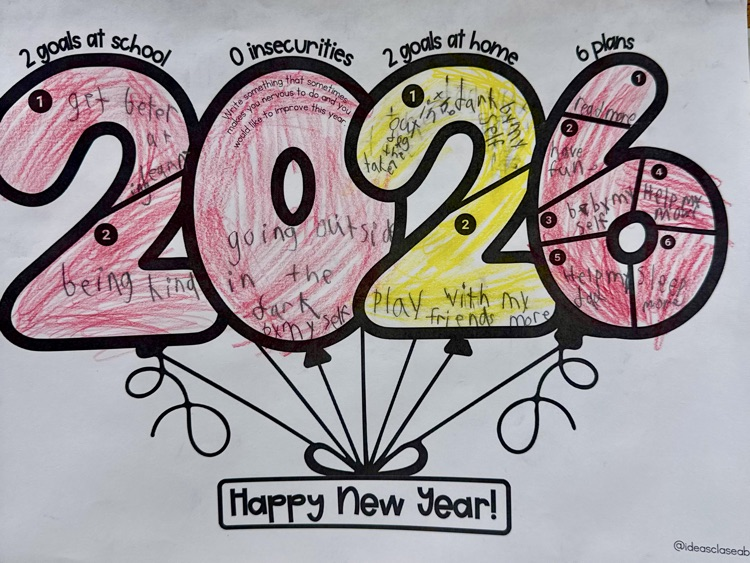 2 goals at school
0 insecurities
2 goals at home
6 plans
1
get beter
at
2
being kind
Write something that sometimes
makes you nervous to do and you
would like to improve this year
going outsid
in the
dark
by my self
1
take
the
dark by my
self
2
play with my
friends more
1
read more
2
have
fun
3
by my
self
4
Help my
mom
5
Help my
dad
6
sleep
more
Happy New Year!
@ideasclaseab